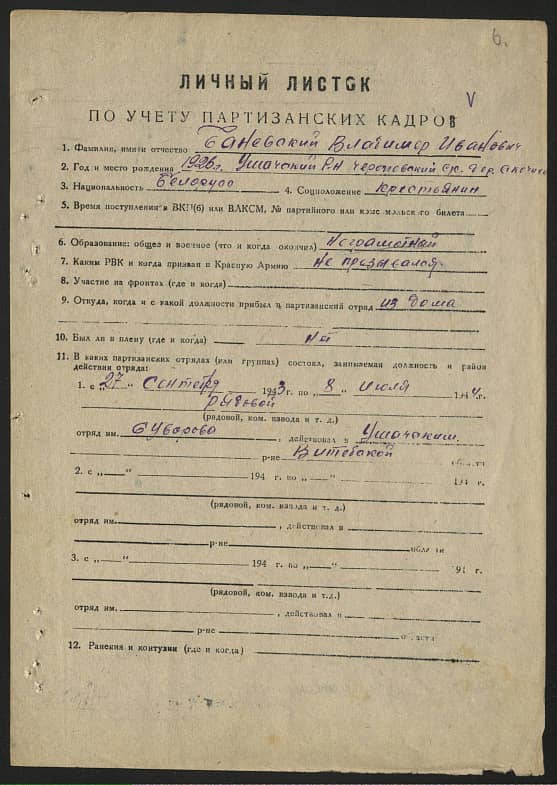 6.
ЛИЧНЫЙ ЛИСТОК
V
ПО УЧЕТУ ПАРТИЗАНСКИХ КАДРОВ
1. Фамилия, имя и отчество Баневский Владимир Иванович
2. Год и место рождения 1926г. Ушачский р-н
3. Национальность Белорус 4. Соцположение крестьянин
5. Время поступления в ВКП(б) или ВЛКСМ, № партийного или комсомольского билета
6. Образование: общее и военное (что и когда окончил) Неграмотный
7. Каким РВК и когда призван в Красную Армию Не призывался
8. Участие на фронтах (где и когда)
9. Откуда, когда и с какой должности прибыл в партизанский отряд из дома
10. Был ли в плену (где и когда) нет
11. В каких партизанских отрядах (или группах) состоял, занимаемая должность и район
действия отряда:
1. с „27“ Сентября 1943 г. по „8“ июля 1944 г.
рядовой
(рядовой, ком. взвода и т. д.)
отряд им. Суворова, действовал в Ушачским
р-не Витебской области
2. с „—“ 194 г. по „—“ 194 г.
(рядовой, ком. взвода и т. д.)
отряд им. , действовал в
р-не области
3. с „—“ 194 г. по „—“ 194 г.
(рядовой, ком. взвода и т.д.)
отряд им. , действовал в
р-не области
12. Ранения и контузии (где и когда)